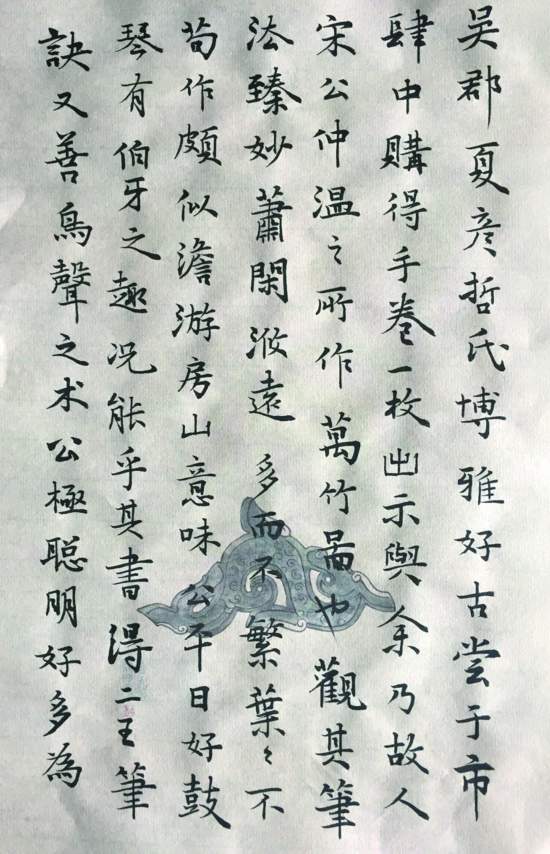 吴郡夏彦哲氏博雅好古尝于市
肆中購得手卷一枚出示與余乃故人
宋公仲温之所作萬竹啚也觀其筆
法臻妙蕭閑攸遠多而不繁葉〻不
苟作頗似澹游房山意味公平日好鼓
琴有伯牙之趣况能乎其書得二王筆
訣又善鳥聲之术公極聪明好多為